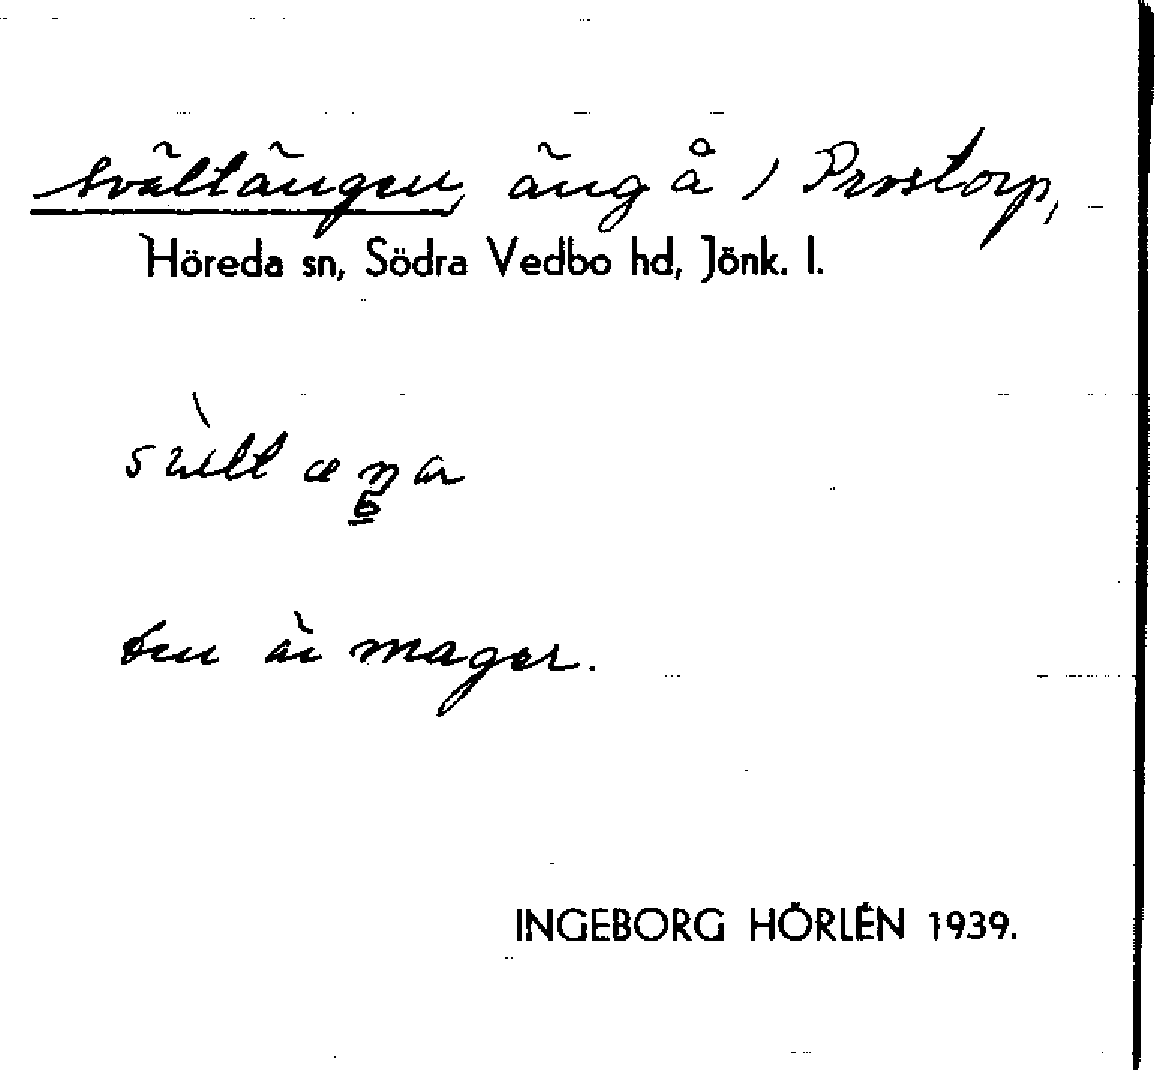 Svältängen, äng å / Prostorp,
Höreda sn, Södra Vedbo hd, Jönk. l.
den är mager.
INGEBORG HÖRLÉN 1939.